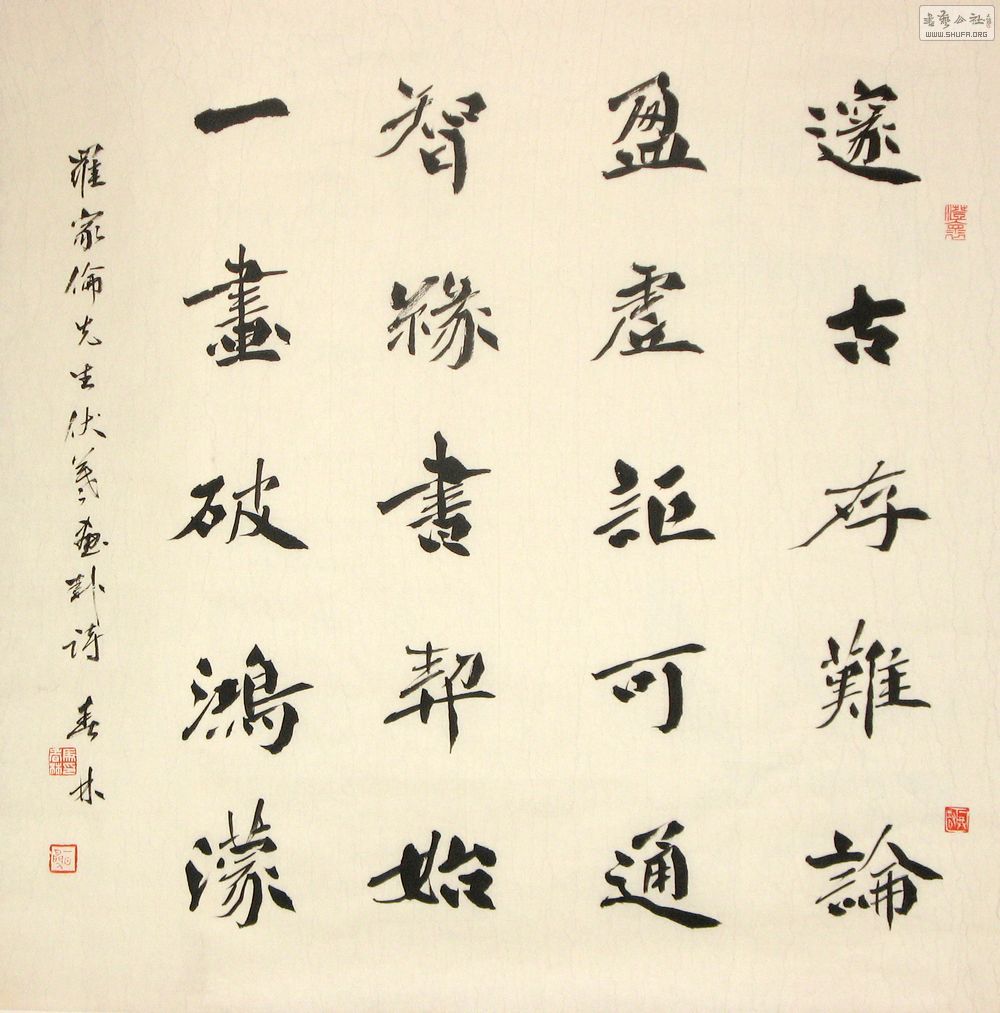 邃古存難論
盈虛詎可通
智緣書契始
一畫破鴻濛
羅家倫先生伏羲畫卦詩 春林
書藝公社
WWW.SHUFA.ORG